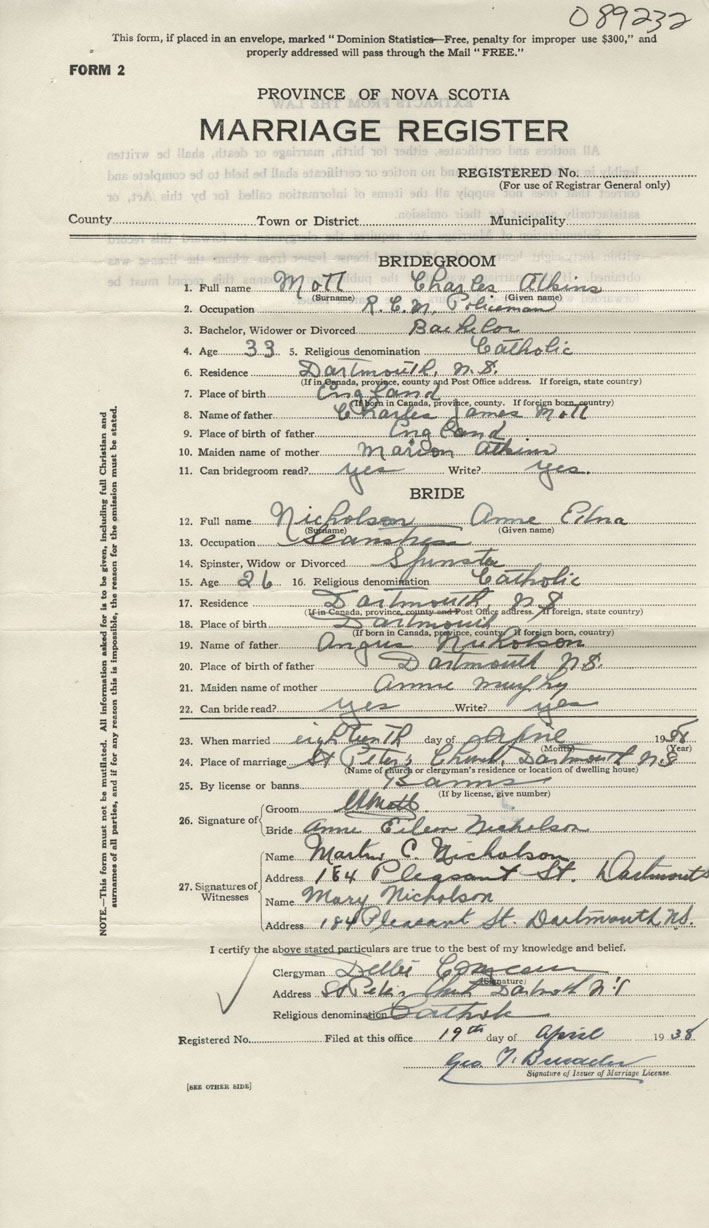 089232
This form, if placed in an envelope, marked "Dominion Statistics—Free, penalty for improper use $300," and
properly addressed will pass through the Mail "FREE."
FORM 2
PROVINCE OF NOVA SCOTIA
MARRIAGE REGISTER
REGISTERED No.
(For use of Registrar General only)
County Town or District Municipality
BRIDEGROOM
1. Full name Mott Charles Atkins
(Surname) (Given name)
2. Occupation R.C.M. Policeman
3. Bachelor, Widower or Divorced Bachelor
4. Age 33 5. Religious denomination Catholic
6. Residence Dartmouth, N.S.
(If in Canada, province, county and Post Office address. If foreign, state country)
7. Place of birth England
(If born in Canada, province, county. If foreign born, country)
8. Name of father Charles James Mott
9. Place of birth of father England
10. Maiden name of mother Marion Atkins
11. Can bridegroom read? yes Write? yes.
BRIDE
12. Full name Nicholson Anne Edna
(Surname) (Given name)
13. Occupation Seamstress
14. Spinster, Widow or Divorced Spinster
15. Age 26 16. Religious denomination Catholic
17. Residence Dartmouth N.S
(If in Canada, province, county and Post Office address. If foreign, state country)
18. Place of birth Dartmouth
(If born in Canada, province, county. If foreign born, country)
19. Name of father Angus Nicholson
20. Place of birth of father Dartmouth N.S.
21. Maiden name of mother Annie Murphy
22. Can bride read? yes Write? yes
23. When married eighteenth day of April 1938
(Month) (Year)
24. Place of marriage St Peter's Church, Dartmouth N.S
(Name of church or clergyman's residence or location of dwelling house)
25. By license or banns Banns
(If by license, give number)
26. Signature of
Groom Mott
Bride Anne Eileen Nicholson
27. Signatures of Witnesses
Name Martin C. Nicholson
Address 184 Pleasant St. Dartmouth
Name Mary Nicholson
Address 184 Pleasant St. Dartmouth N.S.
I certify the above stated particulars are true to the best of my knowledge and belief.
Clergyman
(Signature)
Address St Peter's
Religious denomination Catholic
Registered No. Filed at this office 19th day of April 1938
Geo
Signature of Issuer of Marriage License.
[SEE OTHER SIDE]
NOTE.—This form must not be mutilated. All information asked for is to be given, including full Christian and
surnames of all parties, and if for any reason this is impossible, the reason for the omission must be stated.